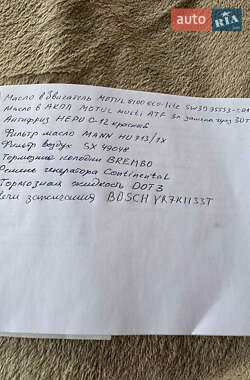 AUTO.RIA
Масло в Двигатель MOTUL 8100 ECO-lite 5W30
Масло в АКПП MOTUL Multi ATF 3л замена
Антифриз HEPU G-12 красный
Фильтр масло MANN HU 713/1X
Фильтр воздух SX 49048
Тормозные колодки BREMBO
Ремень генератора Continental
Тормозная жидкость DOT 3
свечи зажигания BOSCH YR7KI133T